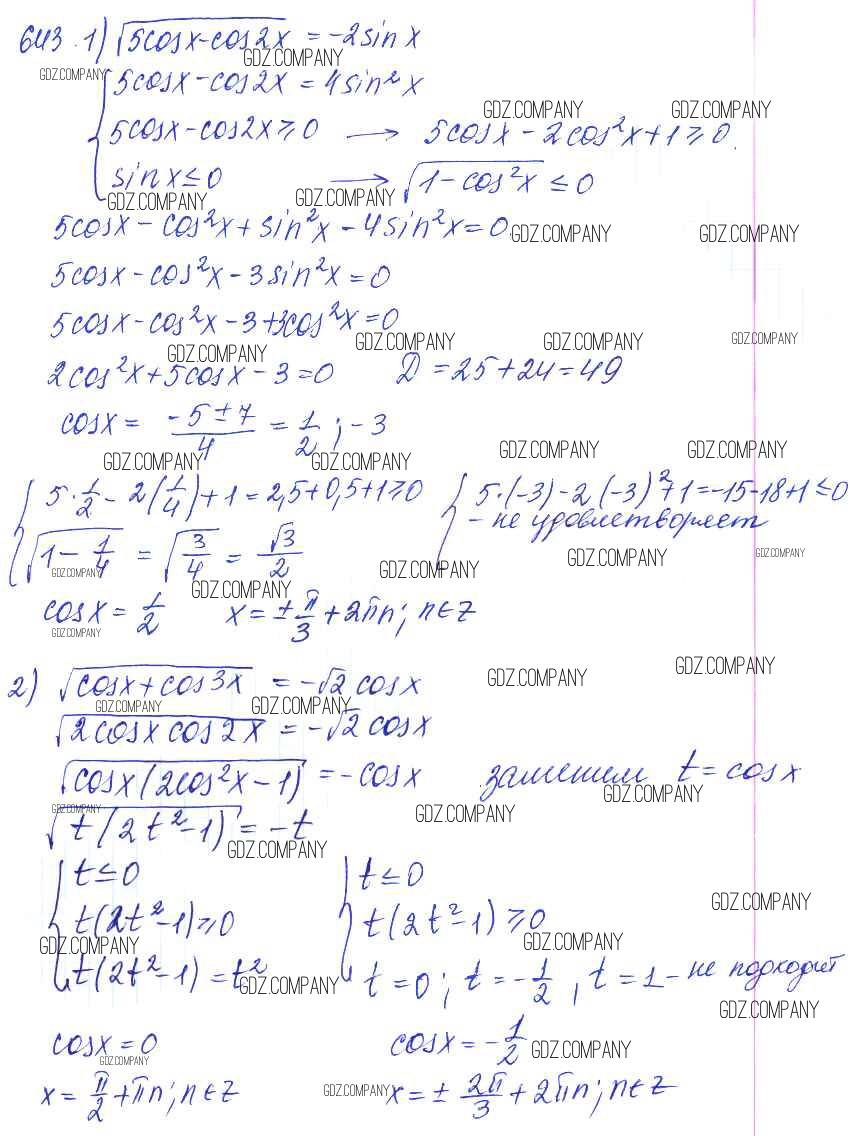 643. 1) √(5cosx-cos2x) = -2sinx
GDZ.COMPANY
GDZ.COMPANY
{ 5cosx - cos2x = 4sin²x
GDZ.COMPANY GDZ.COMPANY
5cosx - cos2x ≥ 0 → 5cosx - 2cos²x + 1 ≥ 0.
sinx ≤ 0 → √(1 - cos²x) ≤ 0
GDZ.COMPANY GDZ.COMPANY
5cosx - cos²x + sin²x - 4sin²x = 0
GDZ.COMPANY GDZ.COMPANY
5cosx - cos²x - 3sin²x = 0
5cosx - cos²x - 3 + 3cos²x = 0
GDZ.COMPANY GDZ.COMPANY GDZ.COMPANY GDZ.COMPANY
2cos²x + 5cosx - 3 = 0 D = 25 + 24 = 49
cosx = (-5 ± 7)/4 = 1/2 ; -3
GDZ.COMPANY GDZ.COMPANY GDZ.COMPANY GDZ.COMPANY
{ 5·1/2 - 2(1/4) + 1 = 2,5 + 0,5 + 1 ≥ 0 { 5·(-3) - 2(-3)² + 1 = -15 - 18 + 1 ≤ 0
- не удовлетворяет
√(1 - 1/4) = √(3/4) = √3/2
GDZ.COMPANY GDZ.COMPANY GDZ.COMPANY GDZ.COMPANY
GDZ.COMPANY
cosx = 1/2 x = ± π/3 + 2πn; n∈Z
GDZ.COMPANY
2) √(cosx + cos3x) = -√2 cosx
GDZ.COMPANY GDZ.COMPANY
GDZ.COMPANY GDZ.COMPANY
√(2cosx cos2x) = -√2 cosx
√(cosx(2cos²x - 1)) = -cosx заменим t = cosx
GDZ.COMPANY GDZ.COMPANY GDZ.COMPANY
√(t(2t² - 1)) = -t
GDZ.COMPANY
{ t ≤ 0 { t ≤ 0
GDZ.COMPANY
t(2t² - 1) ≥ 0 t(2t² - 1) ≥ 0
GDZ.COMPANY GDZ.COMPANY
t(2t² - 1) = t² t = 0; t = -1/2, t = 1 - не подходит
GDZ.COMPANY GDZ.COMPANY
cosx = 0 cosx = -1/2
GDZ.COMPANY GDZ.COMPANY
x = π/2 + πn; n∈Z x = ± 2π/3 + 2πn; n∈Z
GDZ.COMPANY